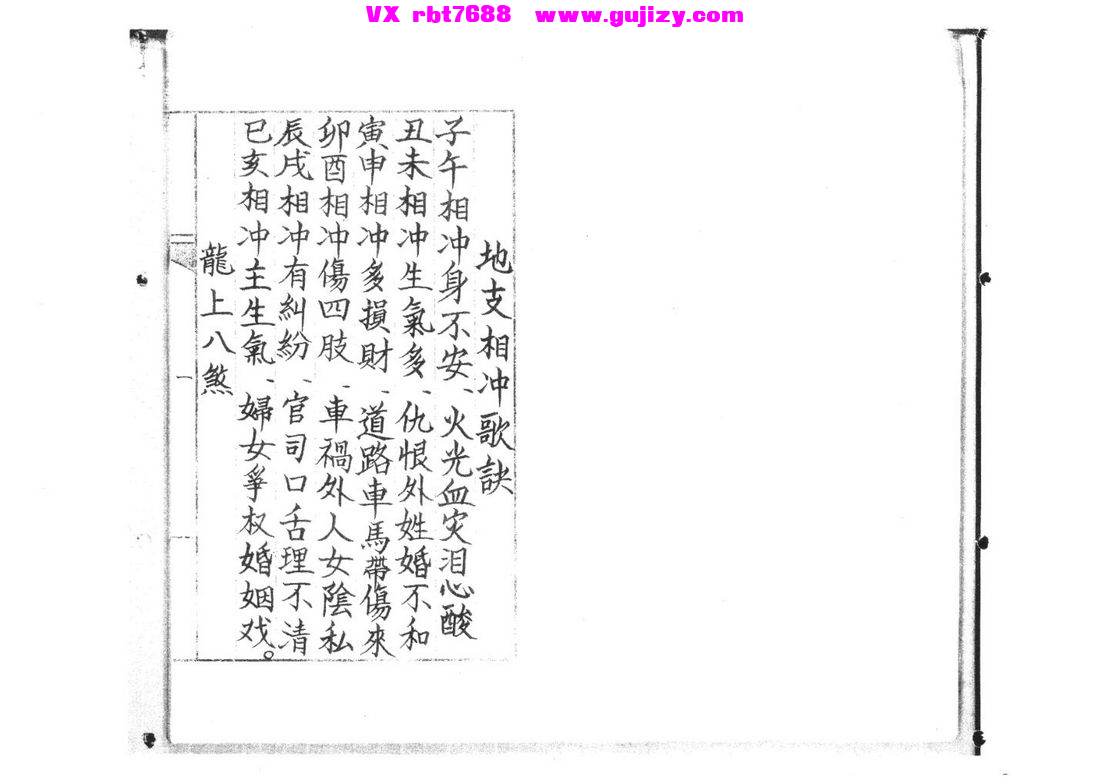 VX rbt7688 www.gujizy.com
地支相冲歌訣
子午相冲身不安、火光血灾泪心酸
丑未相冲生氣多、仇恨外姓婚不和
寅申相冲多損財、道路車馬帶傷來
卯酉相冲傷四肢、車禍外人女陰私
辰戌相冲有糾紛、官司口舌理不清
巳亥相冲主生氣、婦女爭权婚姻戏。
龍上八煞
一